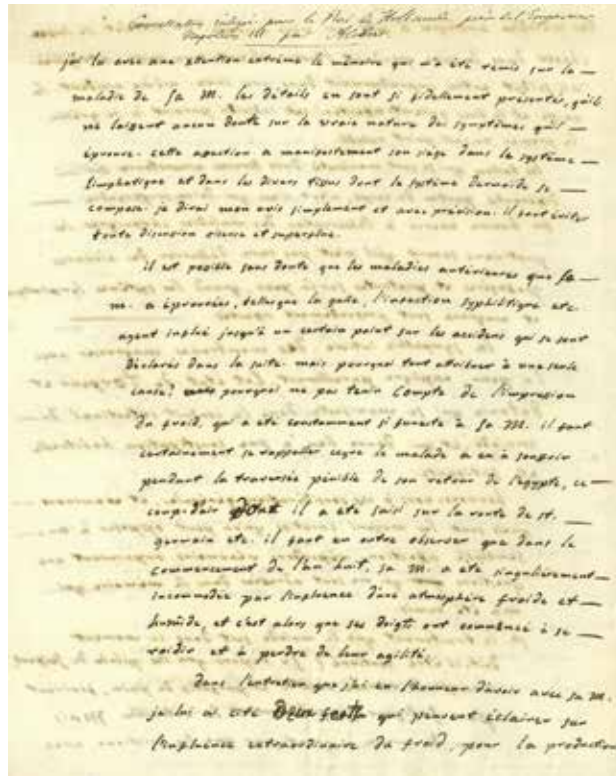 Consultation rédigée pour le Roi de Hollande père de l'Empereur
Napoléon III par Alibert.
j'ai lu avec une attention extrême le mémoire qui m'a été remis sur la —
maladie de sa M. les détails en sont si fidellement présentés, qu'ils
ne laissent aucun doute sur la vraie nature des symptômes qu'il —
éprouve. cette affection a manifestement son siège dans le système
limphatique et dans les divers tissus dont le système dermoide se —
compose. je dirai mon avis simplement et avec précision. il faut éviter
toute discussion oiseuse et superflue.
il est possible sans doute que les maladies antérieures que sa —
m. a éprouvées, telles que la galle, l'infection syphilitique etc.
ayent influé jusqu'à un certain point sur les accidens qui se sont
déclarés dans la suite. mais pourquoi tout attribuer à une seule
cause? pourquoi ne pas tenir compte de l'impression
du froid, qui a été constamment si funeste à sa M. il faut
certainement se rappeller ce que le malade a eu à souffrir
pendant la traversée pénible de son retour de l'égypte, ce —
coup d'air dont il a été saisi sur la route de st. —
germain etc. il faut en outre observer que dans le
commencement de l'an huit, sa M. a été singulièrement —
incommodée par l'influence d'une atmosphère froide et —
humide, et c'est alors que ses doigts ont commencé à se —
roidir et à perdre de leur agilité.
dans l'entretien que j'ai eu l'honneur d'avoir avec sa M.
je lui ai cité deux faits qui peuvent éclairer sur
l'influence extraordinaire du froid, pour la production